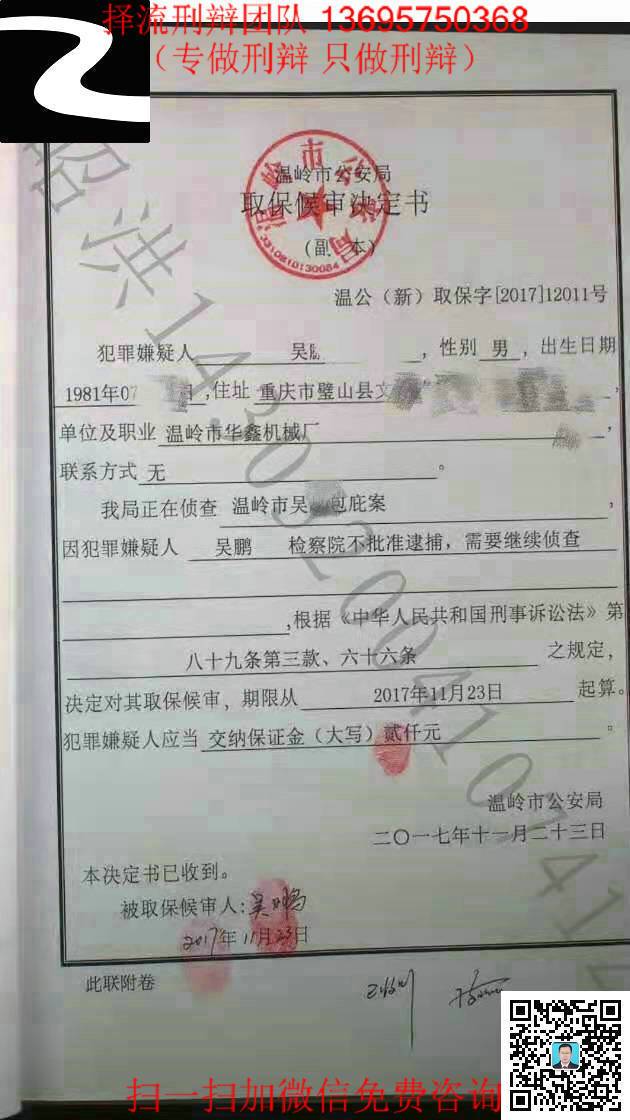 择流刑辩团队 13695750368
（专做刑辩 只做刑辩）
温岭市公安局
温岭市公安局
取保候审决定书
（副 本）
3310810130084
温公（新）取保字[2017]12011号
犯罪嫌疑人 吴 ，性别 男 ，出生日期
1981年07 日 ,住址 重庆市璧山县文 ，
单位及职业 温岭市华鑫机械厂 ，
联系方式 无 。
我局正在侦查 温岭市吴 包庇案 ，
因犯罪嫌疑人 吴鹏 检察院不批准逮捕，需要继续侦查
,根据《中华人民共和国刑事诉讼法》第
八十九条第三款、六十六条 之规定，
决定对其取保候审，期限从 2017年11月23日 起算。
犯罪嫌疑人应当 交纳保证金（大写）贰仟元 。
温岭市公安局
二〇一七年十一月二十三日
本决定书已收到。
被取保候审人:吴鹏
2017年11月23日
此联附卷
扫一扫加微信免费咨询